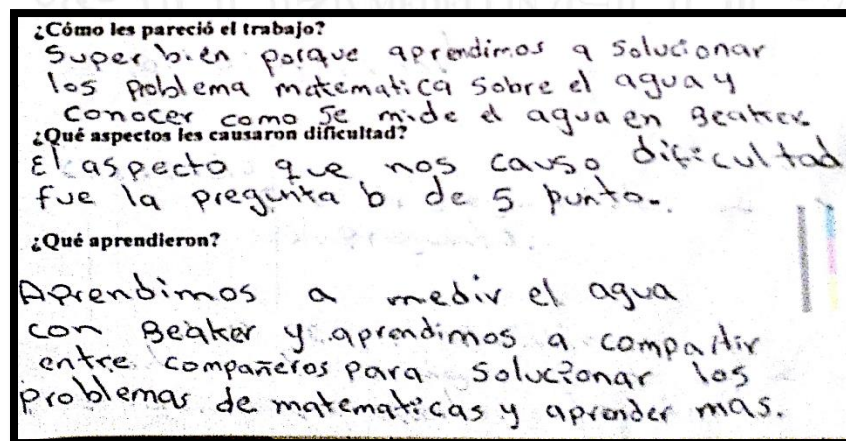 ¿Cómo les pareció el trabajo?
Super bien porque aprendimos a solucionar
los problema matematica sobre el agua y
conocer como se mide el agua en Beaker
¿Qué aspectos les causaron dificultad?
El aspecto que nos causo dificultad
fue la pregunta b. de 5 punto.
¿Qué aprendieron?
Aprendimos a medir el agua
con Beaker y aprendimos a compartir
entre compañeros para solucionar los
problemas de matematicas y aprender mas.